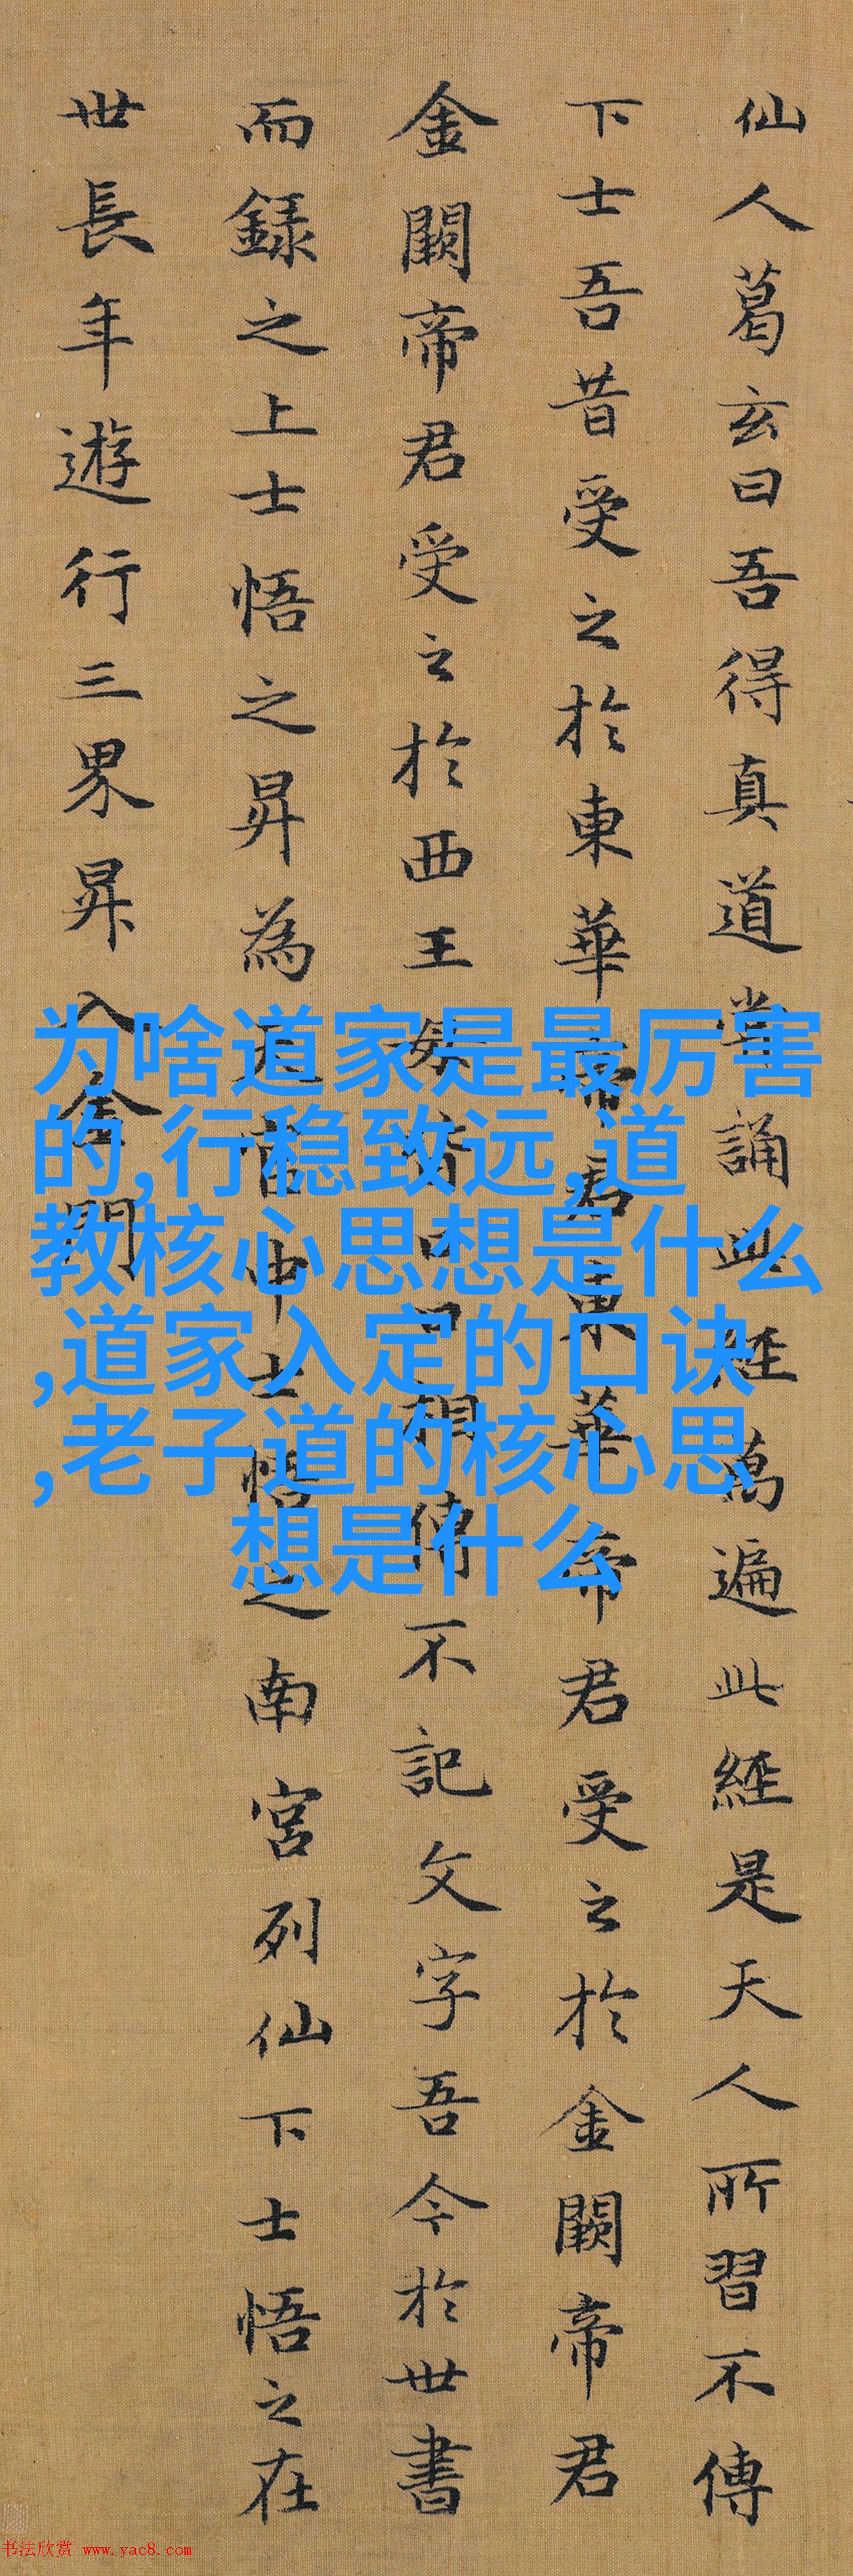 仙人葛玄曰吾得真道誦此經萬遍此經是天人所習不傳
下士吾昔受之於東華帝君東華帝君受之於金闕帝君
金闕帝君受之於西王母皆口口相傳不記文字吾今於世書
而録之上士悟之昇為天官中士悟之南宮列仙下士悟之在
世長年遊行三界昇入金門
为啥道家是最厉害
的,行稳致远,道
教核心思想是什么
,道家入定的口诀
,老子道的核心思
想是什么
书法欣赏 www.yac8.com